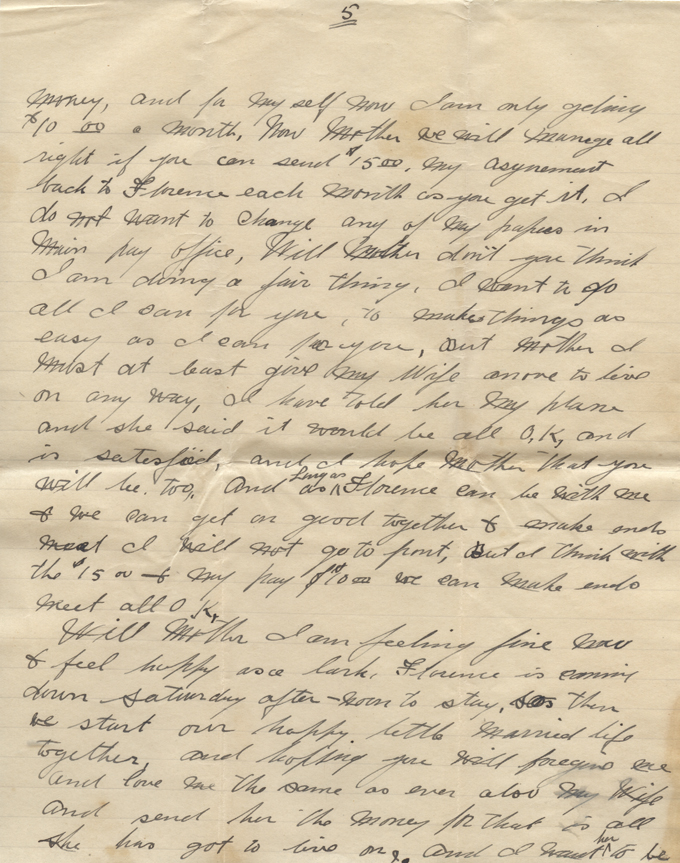 5
money, and for my self now I am only geting
$10 00 a month. Now Mother we will manage all
right if you can send $15 00. my asynement
back to Florence each month as you get it. I
do not want to change any of my papers in
Main pay office, Will Mother don't you think
I am doing a fair thing. I want to do
all I can for you, to make things as
easy as I can for you, But Mother I
Must at least give my Wife anore to live
on any way, I have told her my plans
and she said it would be all O.K, and
is satesfied, and I hope Mother that you
will be. too, And as Long as Florence can be with me
& we can get on good together & make ends
meet I will not go to front, But I think with
the $15 00 & my pay $10 00 we can make ends
meet all O.K,
Will Mother I am feeling fine now
& feel happy as a lark. Florence is coming
down Saturday after-noon to stay, then
we start our happy little married life
together, and hopfing you will foregive me
and love me the same as ever also my Wife
and send her the money for that is all
she has got to live on, and I want her to be